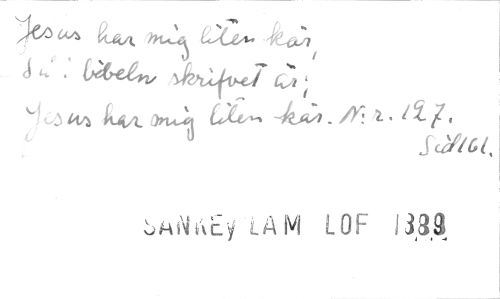 Jesus har mig liten kär,
Så i bibeln skrifvet är;
Jesus har mig liten kär. N:r. 127.
Sid 161.
SANKEY LAM LOF 1889